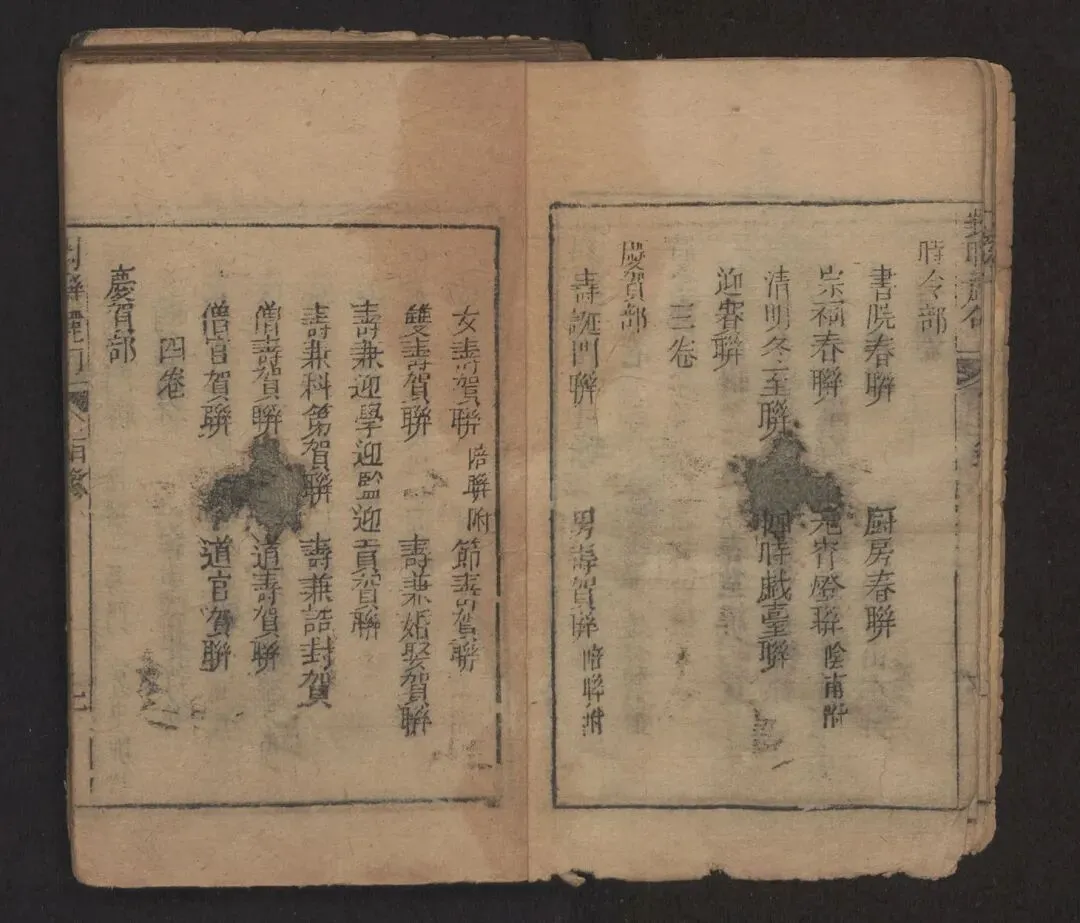 時令部
書院春聯 厨房春聯
宗祠春聯 元宵燈聯 陰南附
清明冬至聯 四時戯臺聯
迎春聯
三卷
慶賀部
壽誕門聯 男壽賀聯 暗聯附
女壽賀聯 暗聯附 節壽賀聯
雙壽賀聯 壽兼婚娶賀聯
壽兼迎學迎監迎貢賀聯
壽兼科第賀聯 壽兼誥封賀
僧壽賀聯 道壽賀聯
僧官賀聯 道官賀聯
四卷
慶賀部